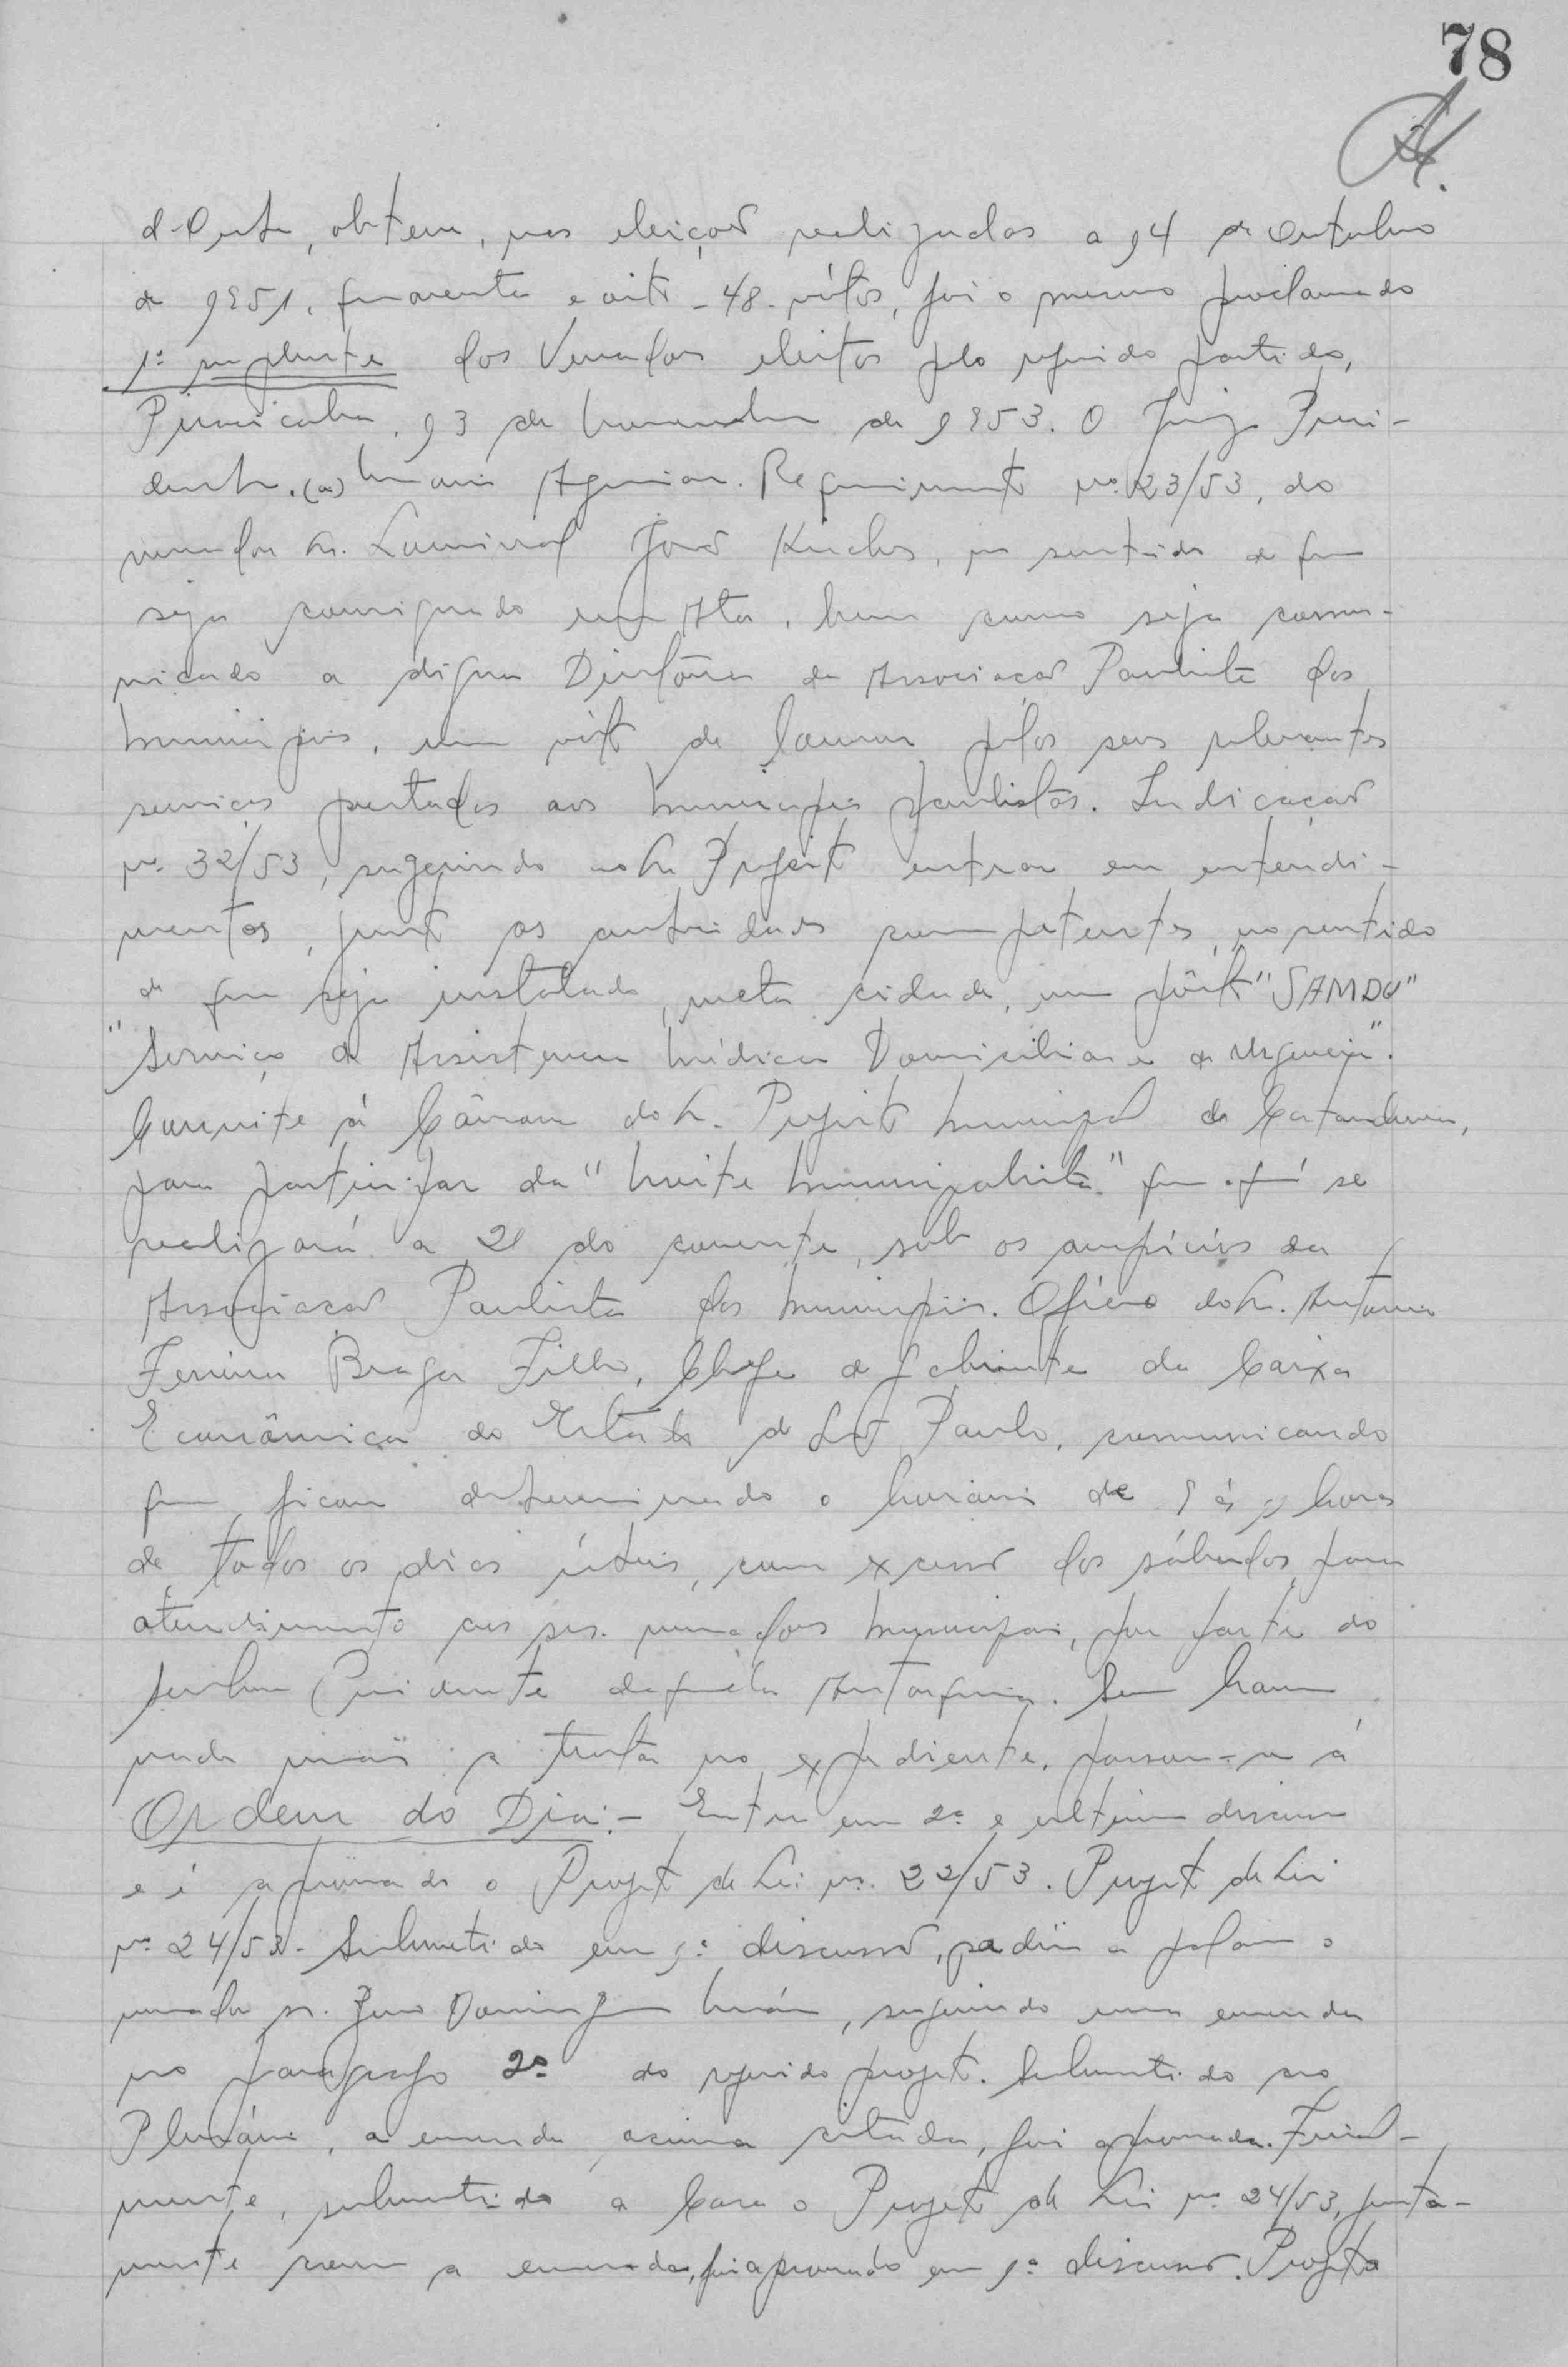 78
d'Oeste, obteve, nas eleições realizadas a 14 de Outubro
de 1951, quarenta e oito - 48 - vótos, foi o mesmo proclamado
1º suplente dos Vereadores eleitos pelo referido partido,
Piracicaba, 13 de Novembro de 1953. O Juiz Presi-
dente. (a) Aguiar. Requerimento nº 123/53, do
vereador Sr. Lourival José, no sentido de que
seja consignado em Ata, bem como seja comu-
nicado a digna Diretória da Associação Paulista dos
Municipios, um vóto de louvor pelos seus relevantes
serviços prestados aos municipios paulistas. Indicação
nº 32/53, sugerindo ao Sr. Prefeito entrar em entendi-
mentos, junto as autoridades competentes, no sentido
de que seja instalado, nesta cidade, um pôsto "SAMDU"
"Serviço de Assistencia Médica Domiciliar e de Urgencia".
Convite á Câmara do Sr. Prefeito Municipal de Catanduva,
para participar da "Noite Municipalista" que ali se
realizará a 21 do corrente, sob os auspícios da
Associação Paulista dos Municipios. Ofício do Sr. Antonio
Ferreira Braga Filho, Chefe de Gabinete da Caixa
Econâmica do Estado de São Paulo, comunicando
que ficou determinado o horario de 9 ás 11 horas
de todos os dias úteis, com excessão dos sábados, para
atendimento aos srs. vereadores municipais, por parte do
senhor Presidente daquela Autarquia. Sem haver
nada mais a tratar no expediente, passou-se á
Ordem do Dia:- Entra em 2ª e ultima discussão
e é aprovado o Projeto de Lei nº 22/53. Projeto de Lei
nº 24/53 - Submetido em 1ª discussão, pediu a palavra o
vereador sr. Domingues, sugerindo uma emenda
no paragrafo 2º do referido projeto. Submetido ao
Plenário, a emenda acima citada, foi aprovada. Final-
mente, submetido a Casa o Projeto de Lei nº 24/53, junta-
mente com a emenda, foi aprovado em 1ª discussão. Projeto